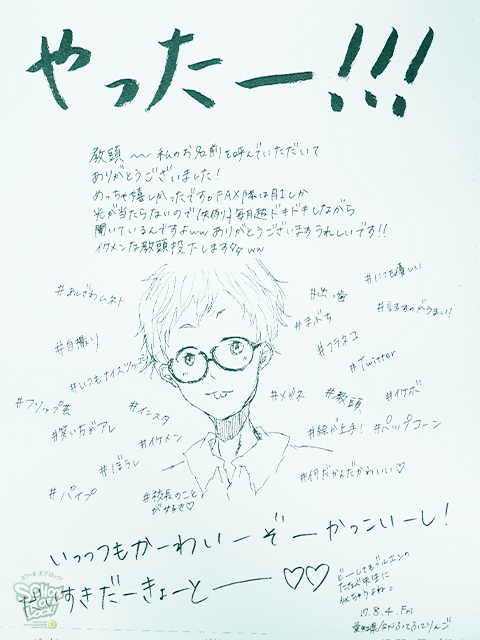 やったー!!!
教頭〜私のお名前を呼んでいただいて
ありがとうございました!
めっちゃ嬉しかったです。FAX隊は月1しか
光が当たらないので(体例)毎月超ドキドキしながら
聞いているんですよww ありがとうございますうれしいです!!
イケメンな教頭投下しますタタww
#よしざわムネト
#出っ歯
#にも優しい
#まぶち
#話すのがうまい!
#自撮り
#フラネコ
#Twitter
#いつもナイスツッコミ
#フリップ芸
#インスタ
#メガネ
#教頭
#イケボ
#笑い方がアレ
#イケメン
#絵が上手!
#パップコーン
#ぼうし
#パイプ
#校長のこと
が好き♡
#何だかんだかわいい♡
いっつもかーわいーぞーかっこいーし!
だいすきだーきょーとーー♡♡
どーしてもジルエンの
たなべ先生に
似ちゃうよね。
17.8.4.Fri
愛知県/RNふてふてりんご
SCHOOL OF LOCK!